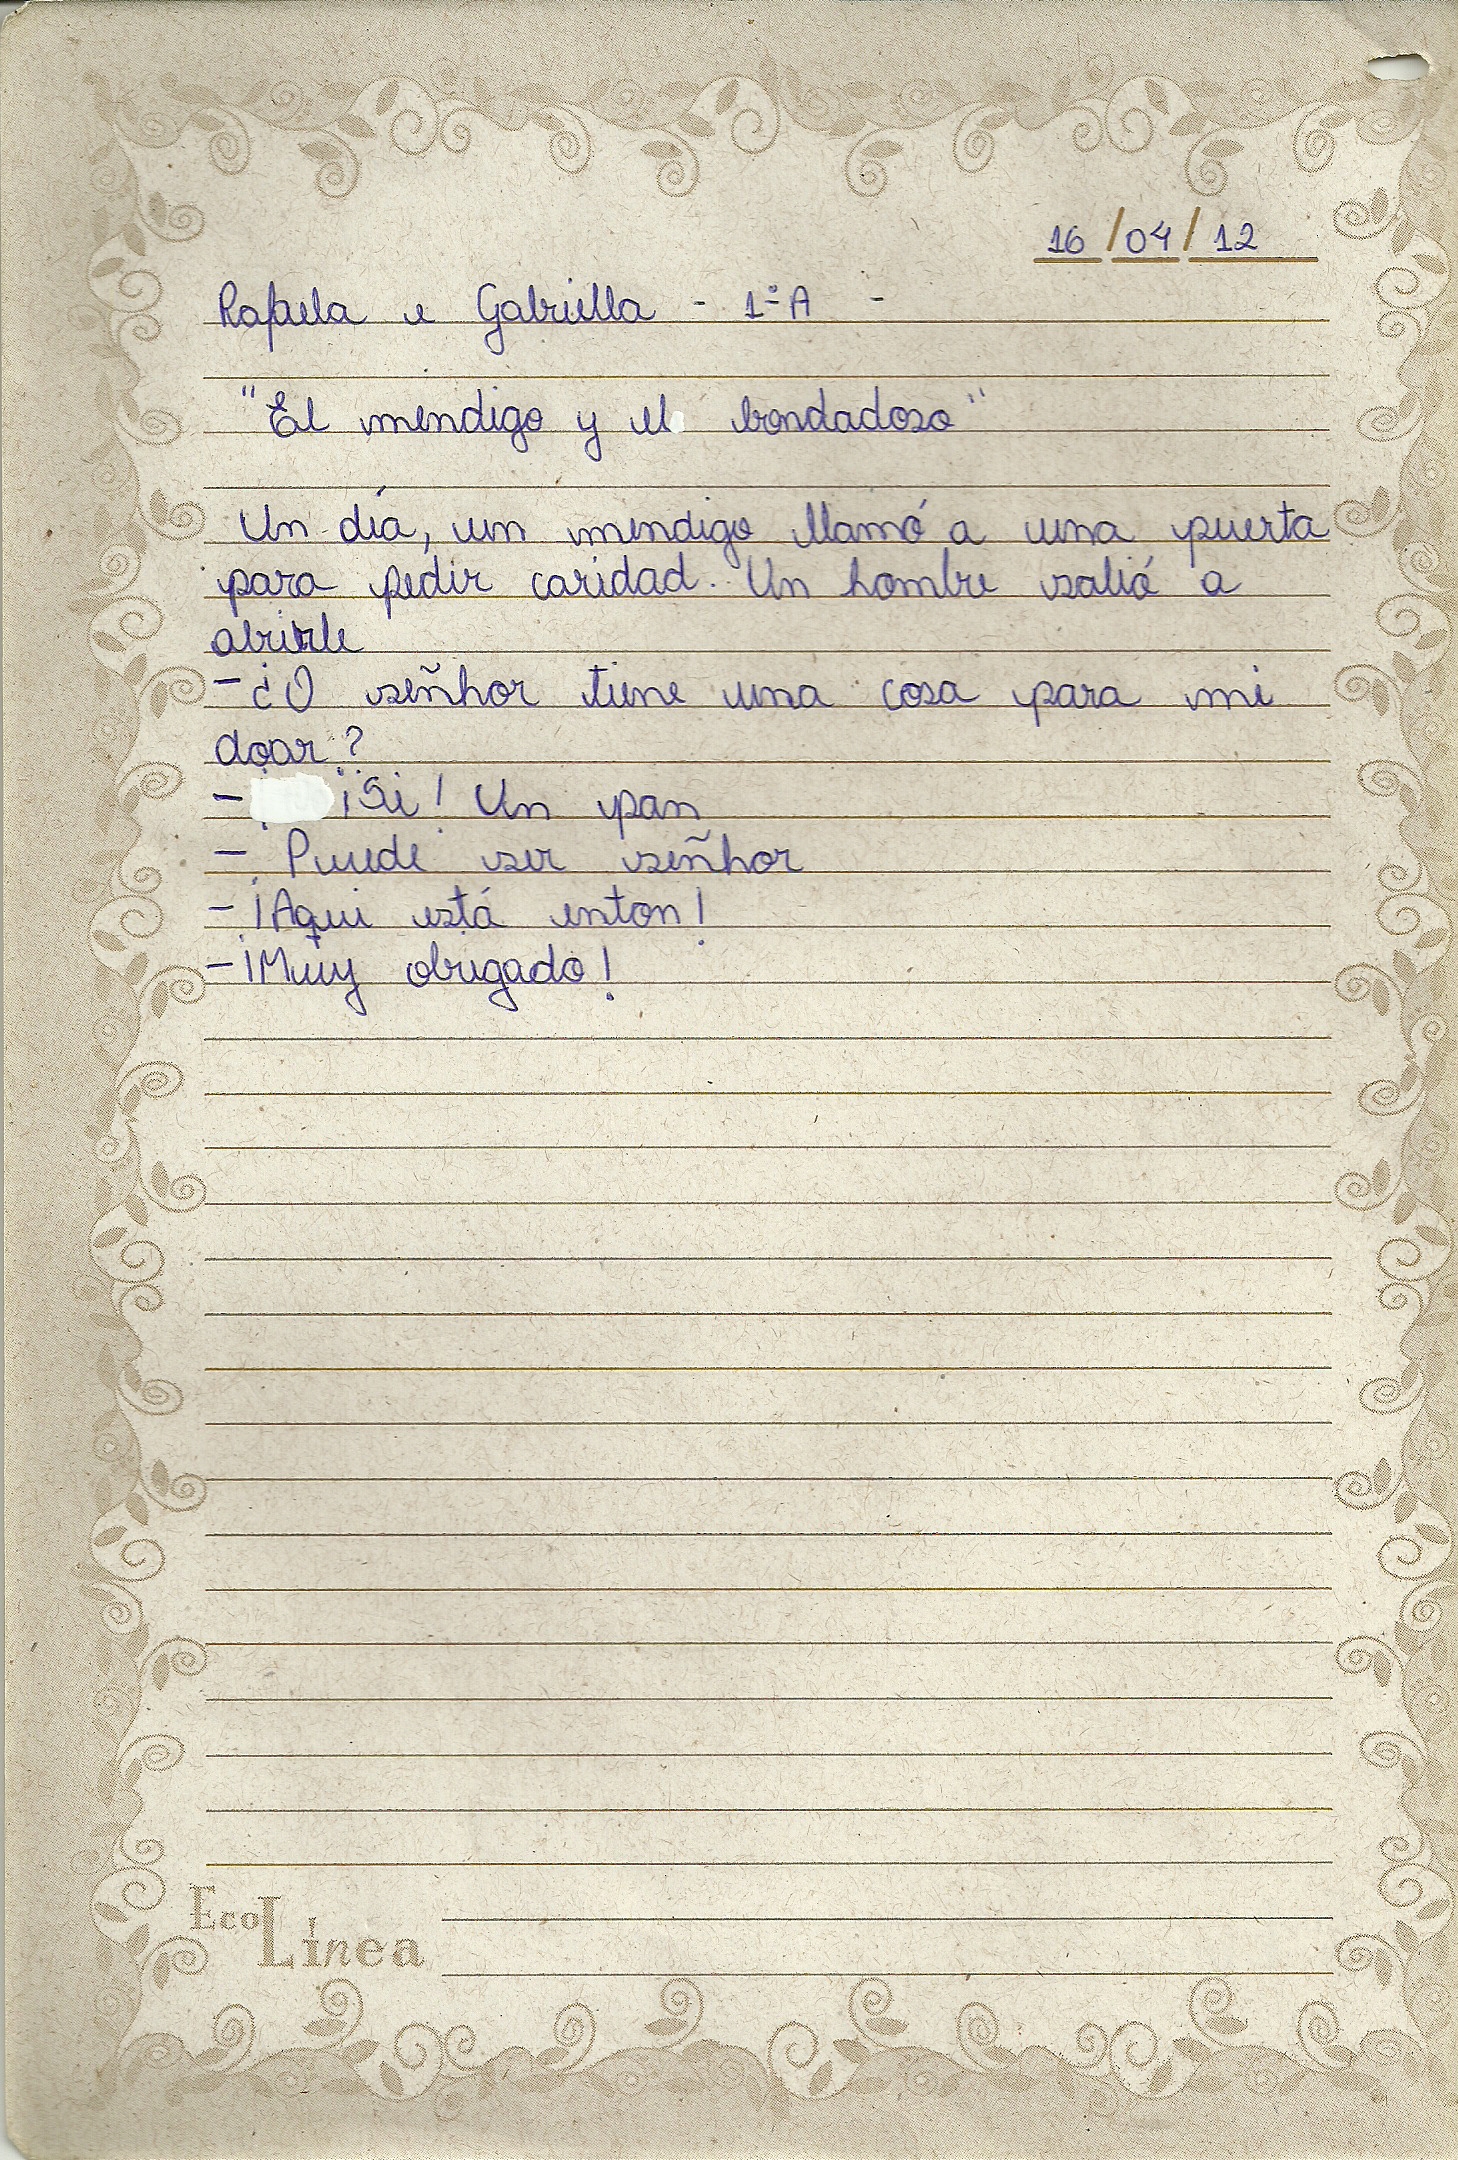 16/04/12
Rafaela e Gabriella - 1ºA -
"El mendigo y el bondadoso"
Un día, un mendigo llamó a una puerta
para pedir caridad. Un hombre salió a
abrirle
- ¿O señhor tiene una cosa para mi
doar?
- ¡Si! Un pan
- Puede ser señhor
- ¡Aqui está enton!
- ¡Muy obrigado!
Eco
Línea